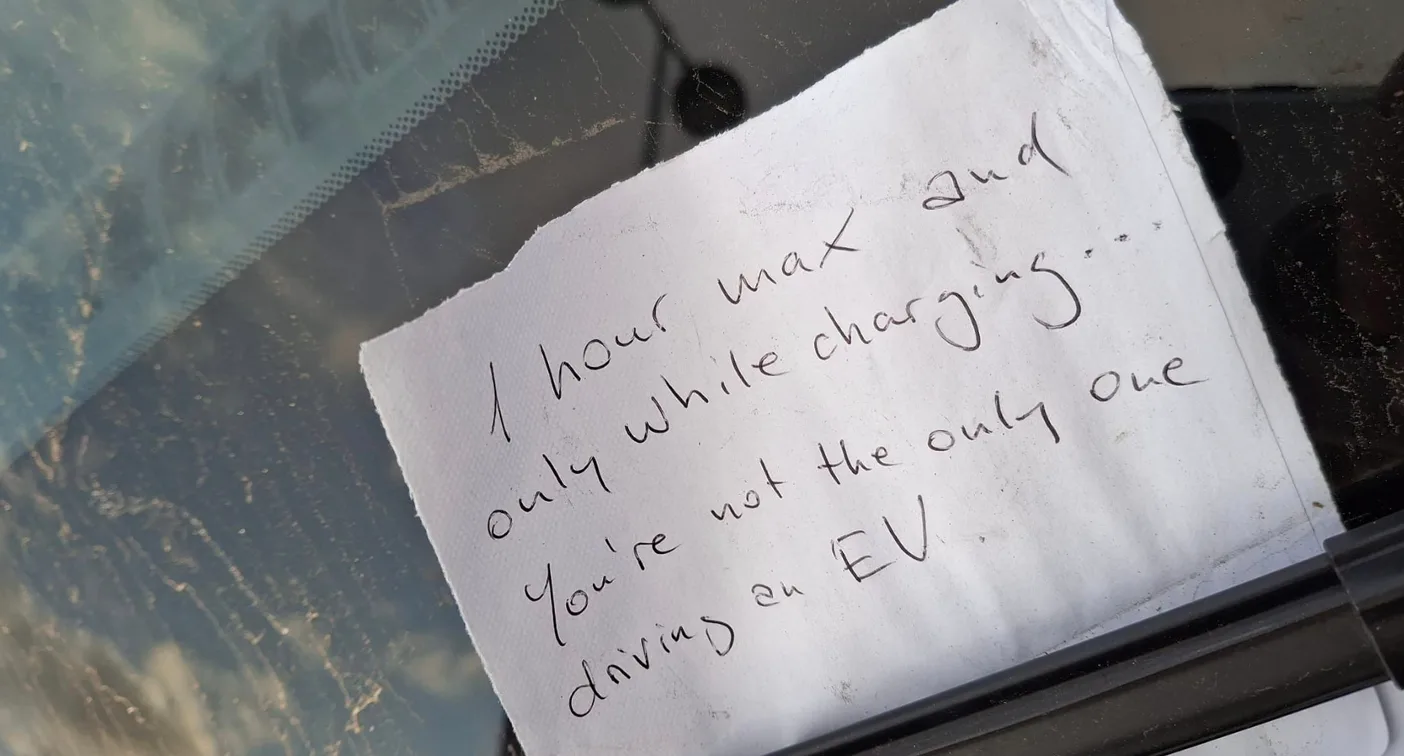 1 hour max and
only while charging...
You're not the only one
driving an EV.